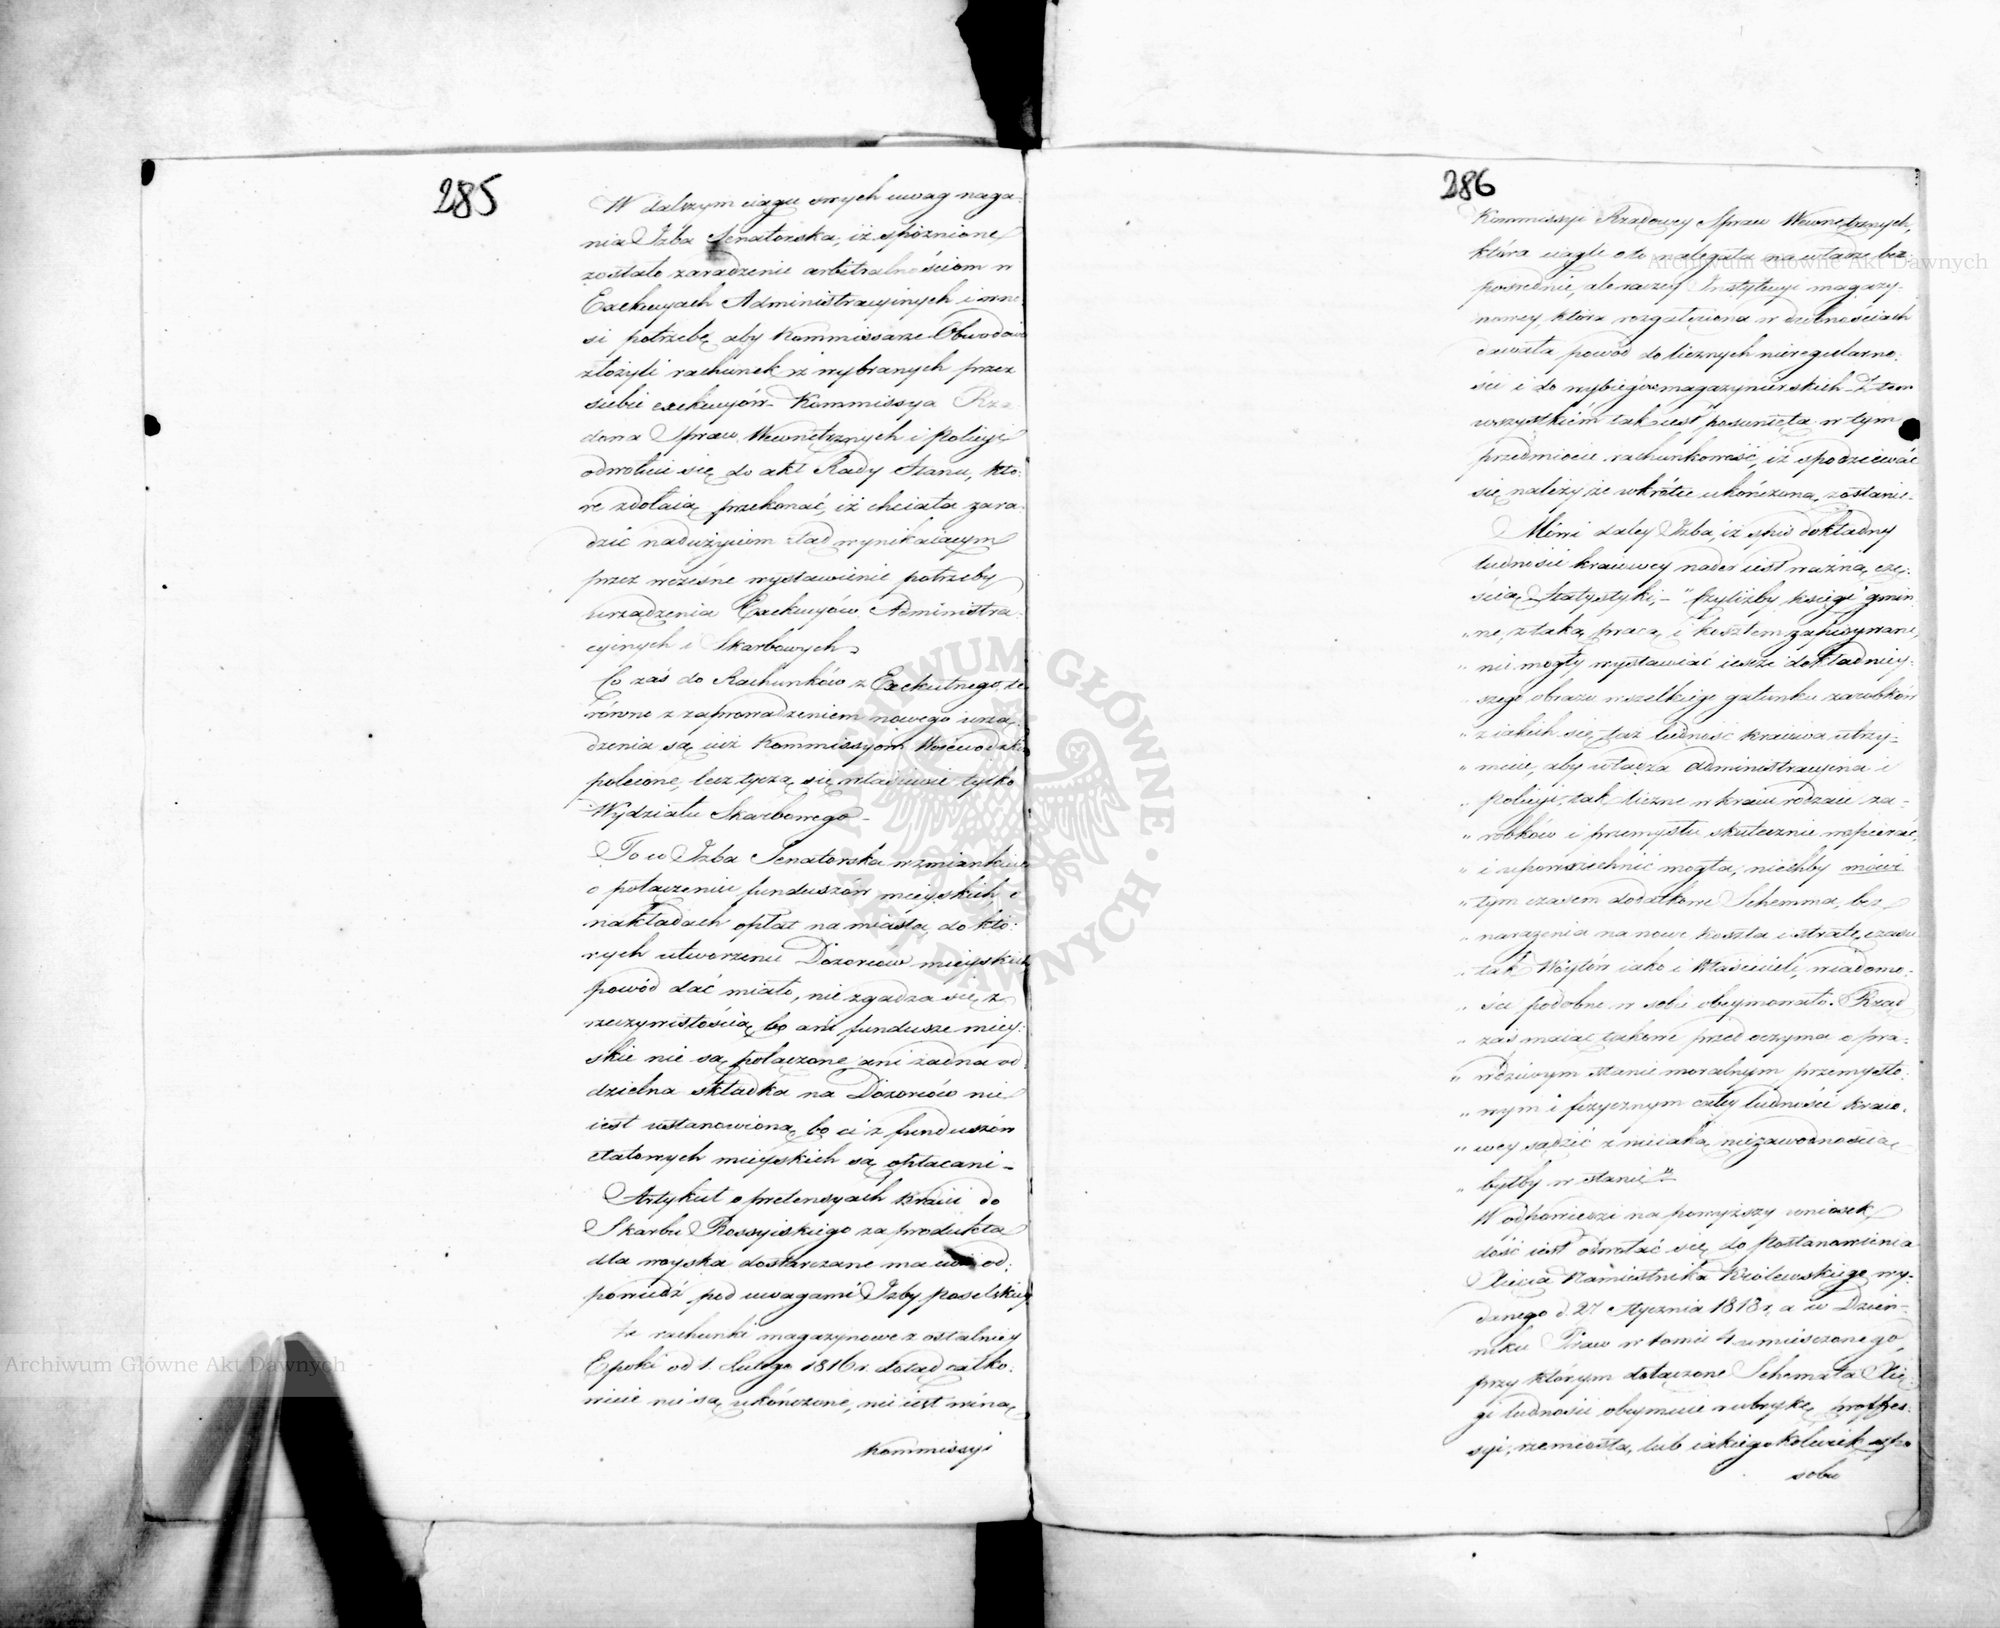 285
W dalszym ciągu swych uwag naga-
nia Izba Senatorska, iż spóźnione
zostało zaradzenie arbitralnościom w
Exekucyach Administracyinych i wno-
si potrzebę aby Kommissarze Obwodowi
złożyli rachunek z wybranych przez
siebie exekucyów. Kommissya Rzą
dowa Spraw Wewnętrznych i Policyi
odwołuie się do akt Rady Stanu, któ-
re zdołaią przekonać, iż chciała zara-
dzić nadużyciom ztąd wynikaiącym
przez wcześne wystawienie potrzeby
urządzenia Exekucyów Administra-
cyinych i Skarbowych.
Co zaś do Rachunków z Exekutnego, te
równo z zaprowadzeniem nowego urzą-
dzenia są iuż Kommissyom Woiewodzkim
polecone, lecz tyczą się właściwie tylko
Wydziału Skarbowego -
To co Izba Senatorska wzmiankuie
o połączeniu funduszów mieyskich i
nakładach opłat na miasta, do któ-
rych utworzenie Dozorców mieyskich
powód dać miało, nie zgadza się z
rzeczywistością, bo ani fundusze miey-
skie nie są połączone ani żadna od
dzielna składka na Dozorców nie
iest ustanowiona, bo ci z funduszów
etatowych mieyskich są opłacani -
Artykuł o pretensyach kraiu do
Skarbu Rossyiskiego za produkta
dla woyska dostarczane ma iuż od-
powiedź pod uwagami Izby Poselskiey
Że rachunki magazynowe z ostatniey
Epoki od 1. Lutego 1816 r. dotąd całko-
wicie nie są ukończone, nie iest winą
Kommissyi
286
Kommissyi Rządowey Spraw Wewnętrznych,
która ciągle o to nalegała na władze bez
pośrednie, ale raczey Instytucyi magazy-
nowey, która rozgałęziona w drobnościach
dawała powód do licznych nieregularno-
ści i do wybiegów magazynierskich. Z tem
wszystkiem tak iest posunięta w tym
przedmiocie rachunkowość, iż spodziewać
się należy że wkrótce ukończona zostanie.
Mówi daley Izba, iż spis dokładny
ludności kraiowey nader iest ważną czę-
ścią Statystyki, - "Czyliżby księgi gmin
" ne, z taką pracą i kosztem zapisywane,
" nie mogły wystawiać ieszcze dokładniey-
" szego obrazu wszelkiego gatunku zarobków
" z iakich się taż ludność kraiowa utrzy-
" muie, aby władza administracyina i
" policyi, tak liczne w kraiu rodzaie za-
" robków i przemysłu skutecznie wspierać,
" i upowszechnić mogła; nieżby mówi
" tym czasem dodatkowe Schemma, bez
" narażenia na nowe koszta i stratę czasu
" tak Wóytów iako i Właścicieli, wiadomo-
" ści podobne w sobie obeymowało. Rząd
" zaś maiąc takowe przed oczyma o pra-
" wdziwym stanie moralnym przemysło-
" wym i fizycznym całey ludności kraio-
" wey sądzić z nieiaką niezawodnością
" byłby w stanie"
W odpowiedzi na powyższy wniosek
dość iest odwołać się do Postanowienia
Xięcia Namiestnika Królewskiego wy-
danego d. 27 Stycznia 1818 r. a w Dzien-
niku Praw w tomie 4 umieszczonego,
przy którym dołączone Schemata Xię
gi ludności obeymuie rubrykę professyi
syi, rzemiosła, lub iakiegokolwiek spo
sobu
Archiwum Główne Akt Dawnych
Archiwum Główne Akt Dawnych
ARCHIWUM GŁÓWNE AKT DAWNYCH